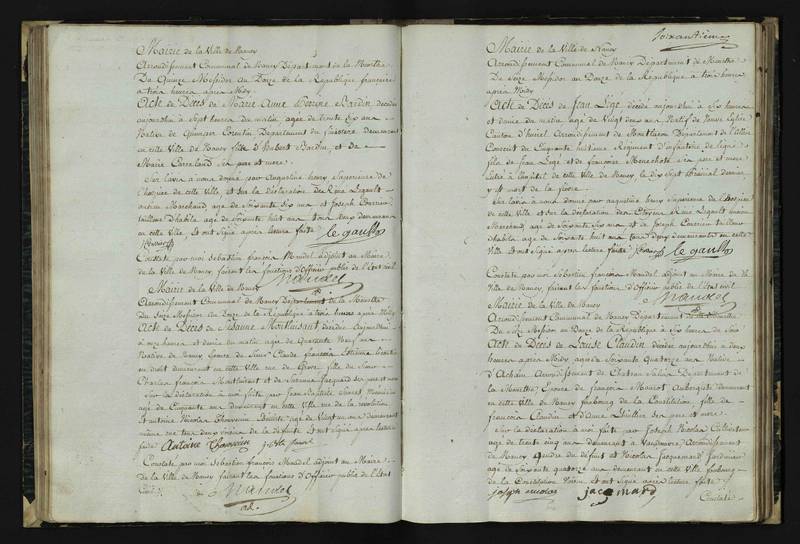 Mairie de la Ville de Nancy
Arrondissement Communal de Nancy Département de la Meurthe
Du Quinze Messidor an Douze de la République française
à trois heures après Midy
Acte de Décès de Marie Anne Bardin décédée
aujourdhui à Sept heures du matin, agée de trente six ans
Native de Quimper Corentin Département du finistere demeurant
en cette Ville de Nancy fille d'Hubert Bardin, et de
Marie ses pere et mere
Sur l'avis à nous donné par Augustine henry Supérieure de
l'hospice de cette Ville, et sur la déclaration de Réné Legault
ancien Marchand, agé de Soixante six ans et Joseph
tailleur d'habits, agé de Soixante huit ans tous deux demeurant
en cette Ville, et ont Signé après lecture faite le gault
Constaté par moi Sébastien françois Mandel adjoint au Maire
de la Ville de Nancy faisant les fonctions d'Officier public de l'état civil
Mandel
Mairie de la Ville de Nancy
Arrondissement Communal de Nancy Département de la Meurthe
Du Seize Messidor an Douze de la République à trois heures après Midy
Acte de Décès de Susanne Montluisant décédée Aujourdhui
à onze heures et demie du matin agée de Quarante Neuf ans
Native de Nancy Epouse de Sieur Claude françois
en droit demeurant en cette Ville rue de fille du Sieur
Charles françois Montluisant et de Jacquard ses pere et mere
Sur la déclaration à nous faite par Jean Baptiste
agé de Cinquante ans demeurant en cette Ville rue de la révolution
et antoine Nicolas Thouvenin agé de Vingt un ans demeurant
même rue tous deux de la défunte et ont Signé après lecture
faite Antoine Thouvenin
Constaté par moi Sébastien françois Mandel adjoint au Maire
de la Ville de Nancy faisant les fonctions d'Officier public de l'état
Civil.
Mandel
ad.
soixantieme
Mairie de la Ville de Nancy
Arrondissement Communal de Nancy Département de la Meurthe
Du Seize Messidor an Douze de la République à trois heures
après Midy
Acte de Décès de Jean Lége décédé aujourdhui à Six heures
et demie du matin, agé de Vingt deux ans Natif de Neuve Eglise
Canton d'huriel Arrondissement de Montlucon Département de l'allier
Conscrit du Cinquante huitieme Régiment d'infanterie de ligne
fils de Jean Lege et de françoise ses pere et mere
entré à l'hopital de cette Ville de Nancy, le dix Sept Prairial dernier
y est mort de la fievre.
Sur l'avis à nous donné par augustine henry Supérieure de l'hospice
de cette Ville et Sur la déclaration des Citoyens Réné Legault ancien
Marchand, agé de Soixante Six ans et de Joseph tailleur
d'habits agé de Soixante huit ans tous deux demeurants en cette
Ville et ont Signé après lecture faite le gault
Constaté par moi Sébastien françois Mandel adjoint au Maire de la
Ville de Nancy, faisant les fonctions d'Officier public de l'état civil
Mandel
Mairie de la Ville de Nancy
Arrondissement Communal de Nancy Département de la Meurthe
Du Seize Messidor an Douze de la République à Six heures du Soir
Acte de Décès de Louise Claudin décédée aujourdhui à deux
heures après Midy, agée de Soixante Quatorze ans Native
d'Acham Arrondissement de Chateau Salins Département de
la Meurthe Epouse de françois Aubergiste demeurant
en cette Ville de Nancy faubourg de la Constitution, fille de
francois Claudin et d'Anne Lhuillier ses pere et mere
Sur la déclaration à nous faite par Joseph Nicolas Cultivateur
agé de trente cinq ans demeurant à Vandoeuvre Arrondissement
de Nancy Gendre du défunt et Nicolas Jacquemard Jardinier
agé de Soixante quatorze ans demeurant en cette Ville faubourg
de la Constitution Voisin et ont Signé après lecture faite
joseph nicolas jacqmard
Constaté